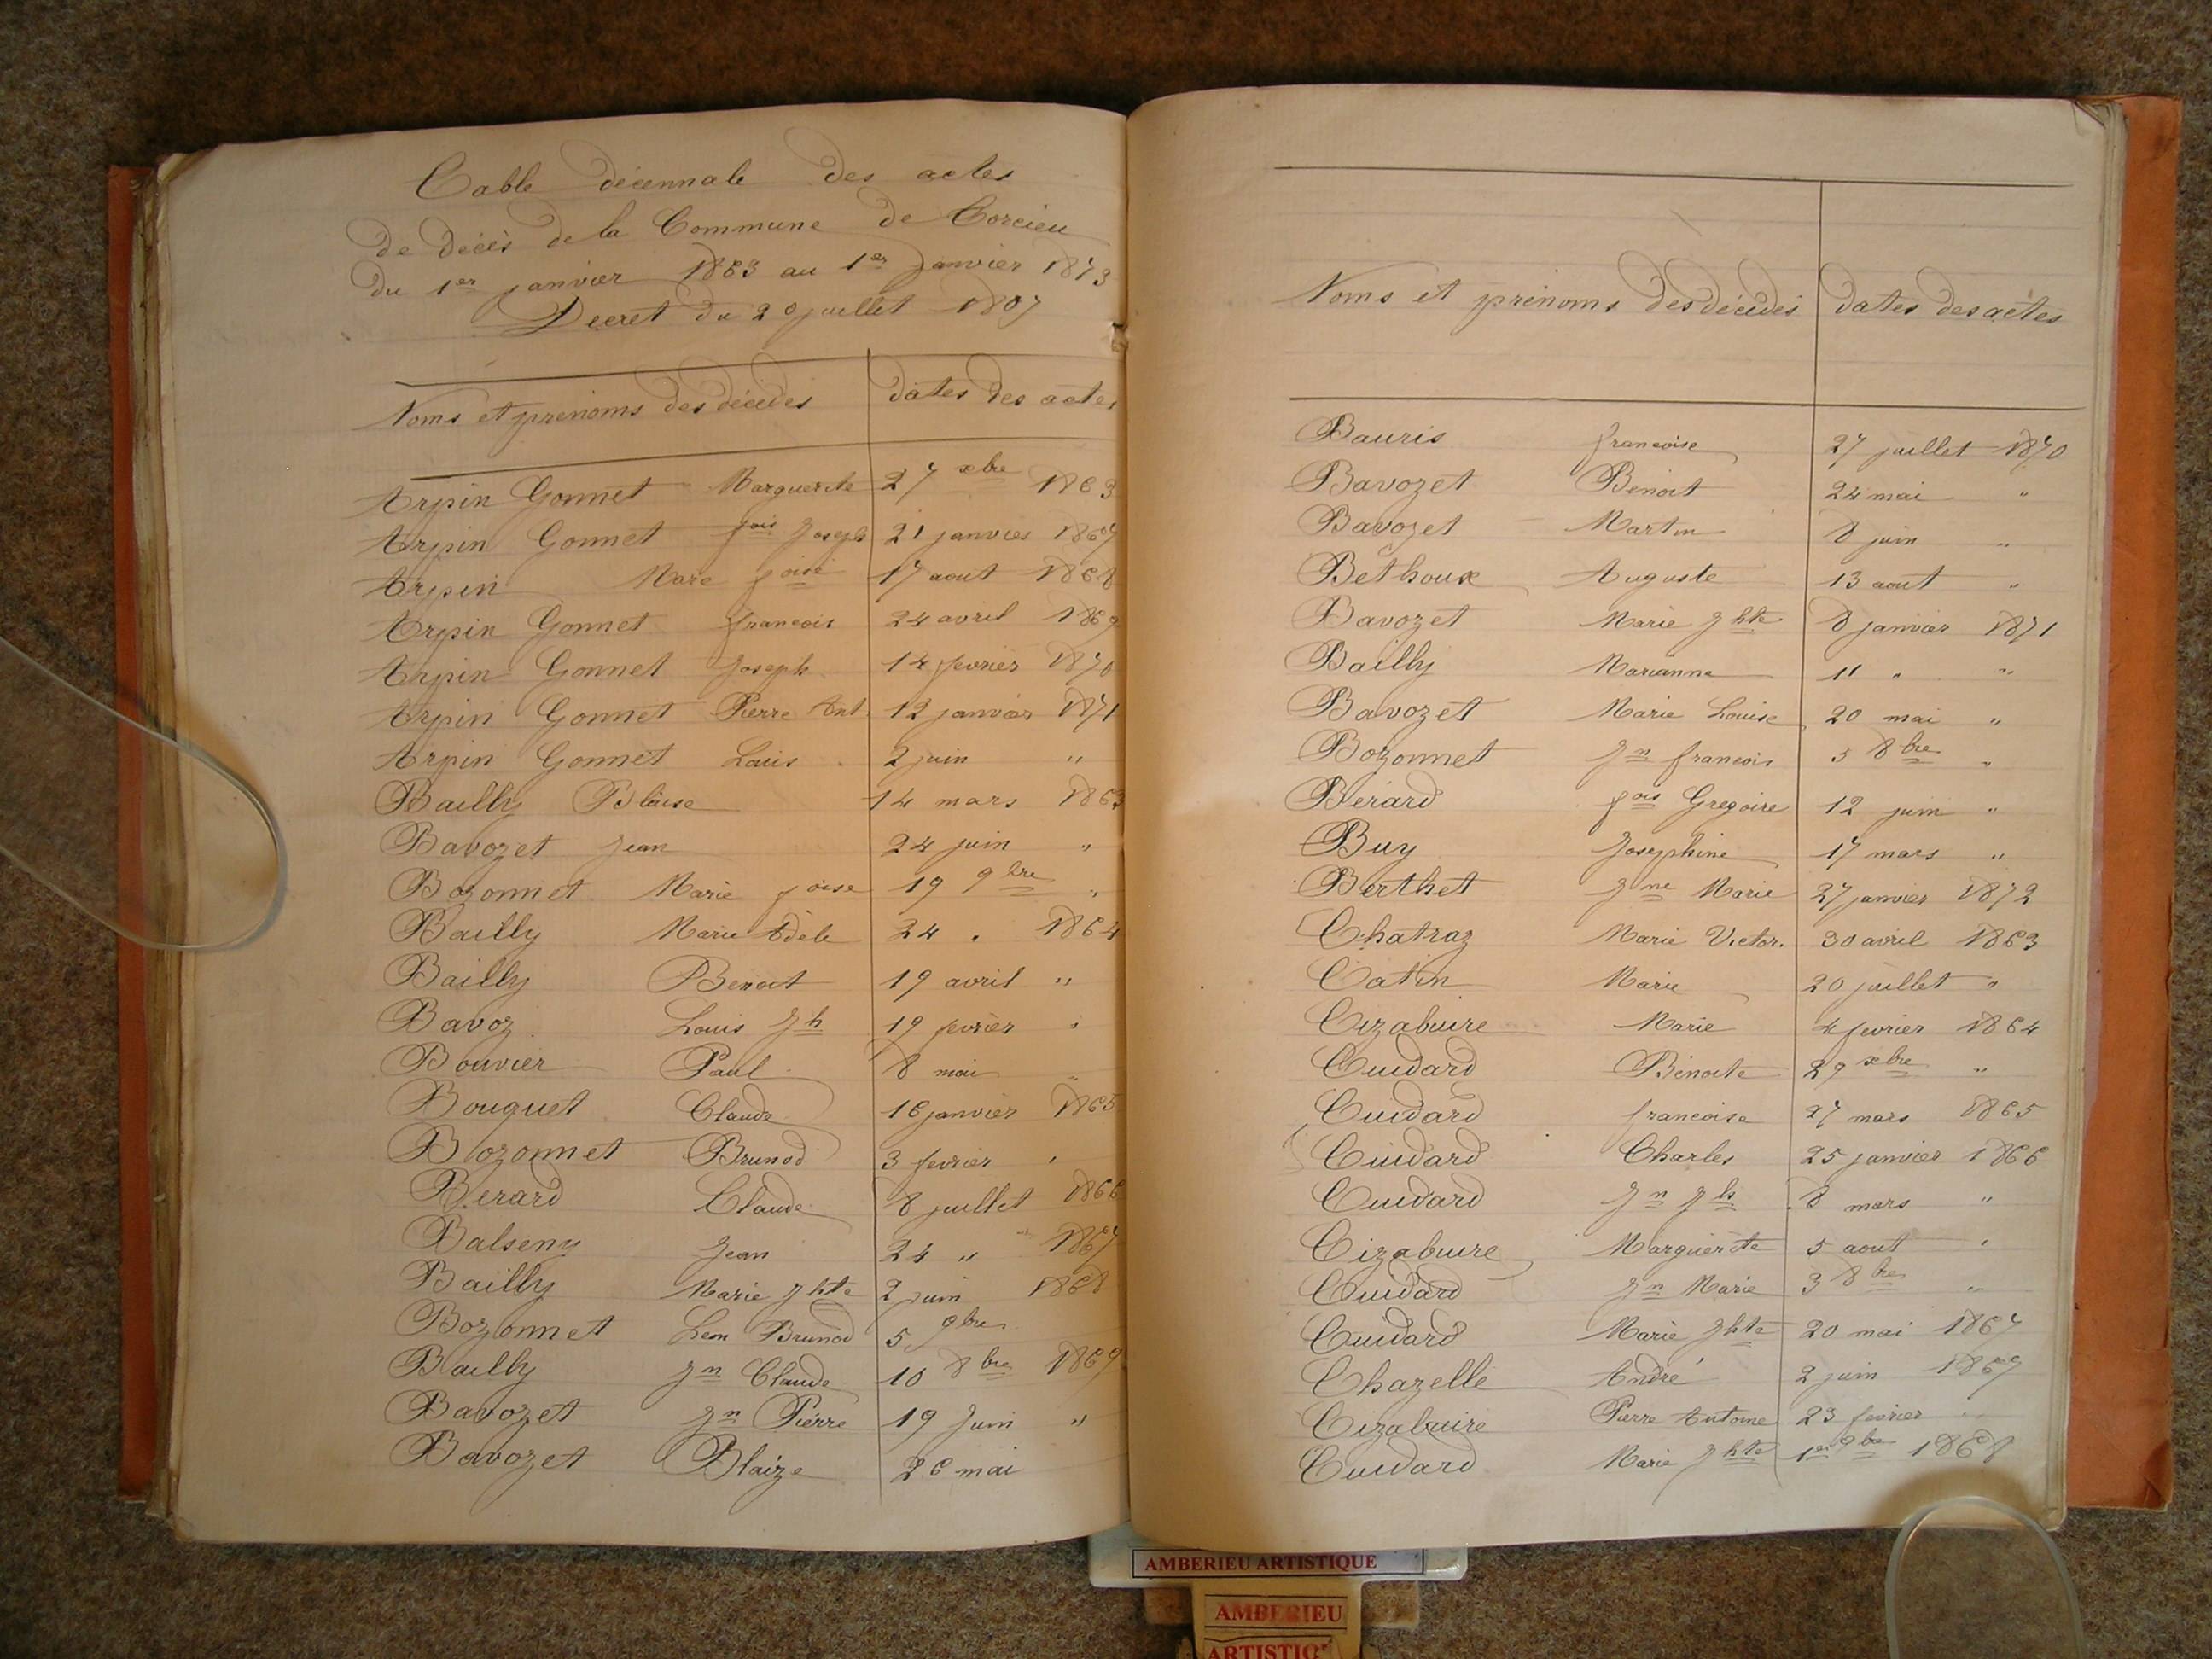 Table décennale des actes
de décès de la Commune de Torcieu
du 1er janvier 1863 au 1er Janvier 1873
Decret du 20 juillet 1807
Noms et prenoms des décédés dates des actes
Arpin Gonnet Marguerite 27 xbre 1863
Arpin Gonnet fois Joseph 21 janvier 1867
Arpin Marie foise 17 aout 1868
Arpin Gonnet francois 24 avril 1869
Arpin Gonnet Joseph 14 fevrier 1870
Arpin Gonnet Pierre Ant. 12 janvier 1871
Arpin Gonnet Louis 2 juin "
Bailly Blaise 14 mars 1863
Bavozet Jean 24 juin "
Bozonnet Marie foise 19 9bre "
Bailly Marie Adèle 24 " 1864
Bailly Benoit 19 avril "
Bavoz Louis Jh 19 fevrier "
Bouvier Paul 8 mai "
Bouquet Claude 16 janvier 1865
Bozonnet Brunod 3 fevrier "
Berard Claude 8 juillet 1866
Balseny Jean 24 " 1867
Bailly Marie Jhte 2 juin 1868
Bozonnet Leon Brunod 5 9bre
Bailly Jn Claude 10 8bre 1869
Bavozet Jn Pierre 19 Juin "
Bavozet Blaize 26 mai
Noms et prénoms des décédés dates des actes
Bauris francoise 27 juillet 1870
Bavozet Benoit 24 mai "
Bavozet Martin 8 juin "
Bethoux Auguste 13 aout "
Bavozet Marie Jhte 8 janvier 1871
Bailly Marianne 11 " "
Bavozet Marie Louise 20 mai "
Bozonnet Jn francois 5 8bre "
Bérard fois Gregoire 12 juin "
Buy Josephine 17 mars "
Berthet Jne Marie 27 janvier 1872
Chatraz Marie Victor. 30 avril 1863
Catin Marie 20 juillet "
Cizabuire Marie 4 fevrier 1864
Cuidard Benoite 29 xbre "
Cuidard francoise 27 mars 1865
Cuidard Charles 25 janvier 1866
Cuidard Jn Jh 8 mars "
Cizabuire Marguerite 5 aout "
Cuidard Jn Marie 3 8bre "
Cuidard Marie Jhte 20 mai 1867
Chazelle André 2 juin 1867
Cizabuire Pierre Antoine 23 fevrier "
Cuidard Marie Jhte 1er 9bre 1868
AMBERIEU ARTISTIQUE
AMBERIEU